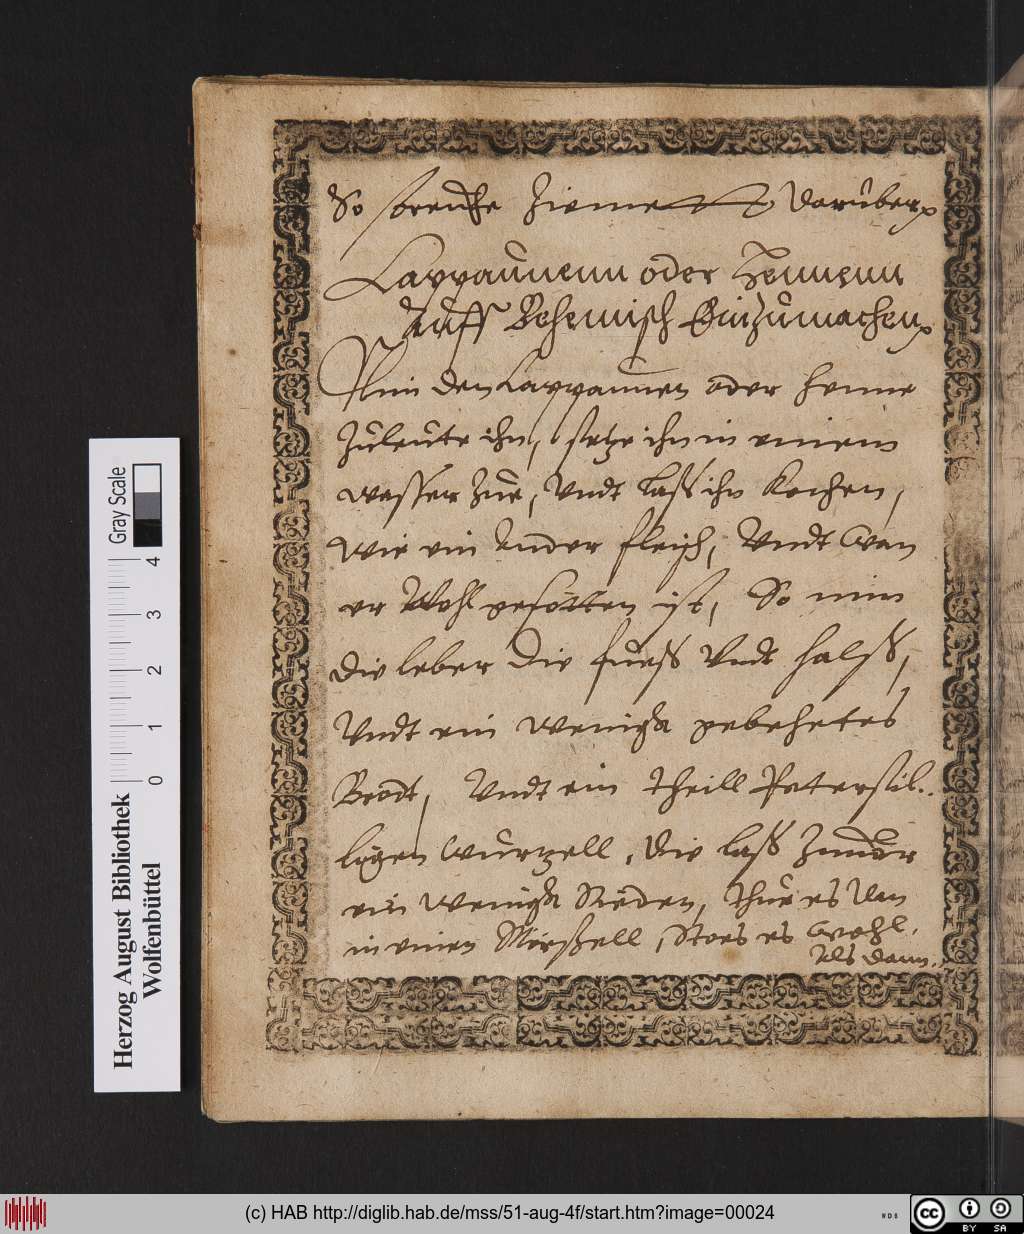 So streuhe Zimett darüber
Cappaunenn oder Hennenn
Auff Behemisch Einzumachen
Nim den Cappaunen oder henne
Zuleute ihn, setze ihn in einem
wasser Zue, Undt laß ihn Kochen,
wie ein Ander fleisch, Undt wan
er Wohl gesotten ist, So nim
die leber die fueß Undt halß,
Undt ein wenigk gebehetes
Brodt, Undt ein theill Petersil..
ligen wurtzell, die laß
ein wenigk Sieden, thue es
in einen Mörßell, Stoes es wohl,
Als dann.
Gray Scale
0 1 2 3 4
Herzog August Bibliothek
Wolfenbüttel
(c) HAB http://diglib.hab.de/mss/51-aug-4f/start.htm?image=00024
WDB
cc BY SA